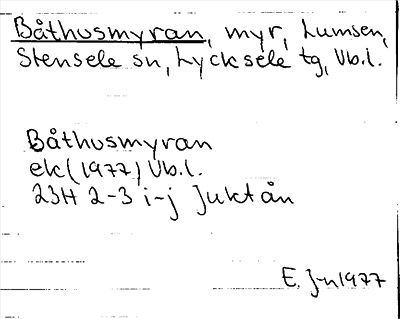 Båthusmyran, myr, Lumsen,
Stensele sn, Lycksele tg, Vb.l.
Båthusmyran
ek (1977) Vb.l.
23H 2-3 i-j Juktån
E. J-n 1977